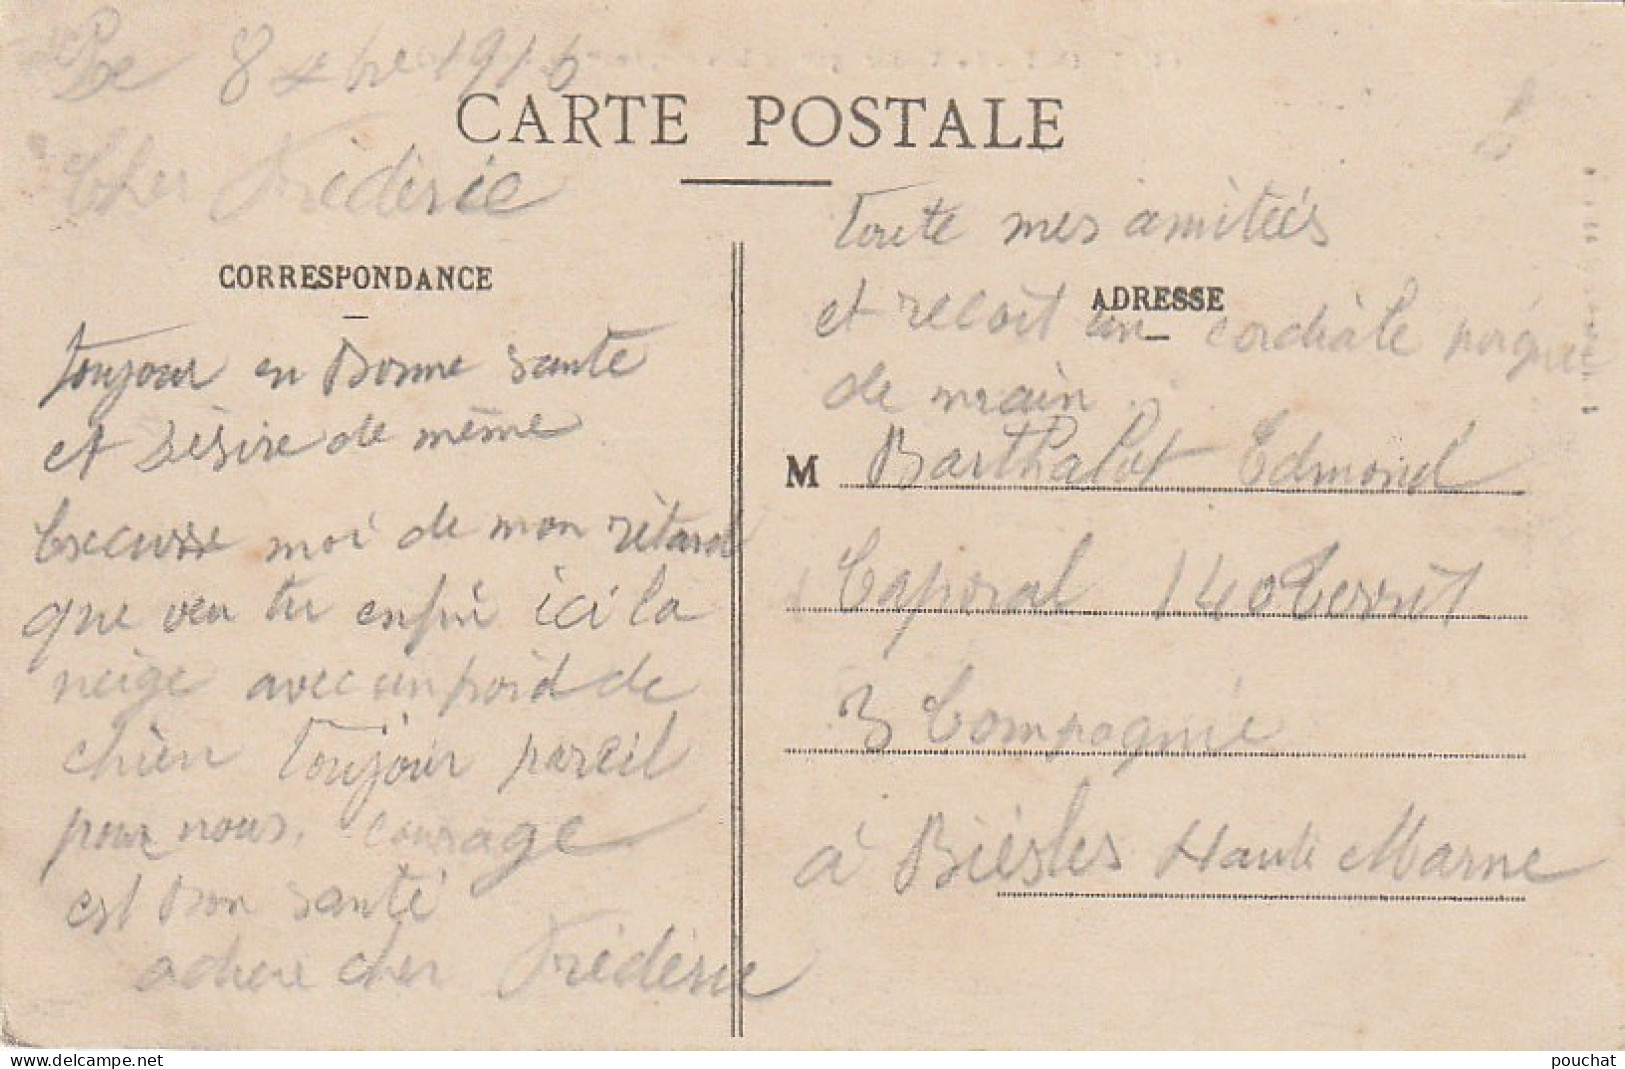 Le 8 xbre 1916
CARTE POSTALE
Cher Fréderic
CORRESPONDANCE
Toujour en Bonne santé
et Désire de même
Excusse moi de mon rétard
que veu tu enfin ici la
neige avec un froid de
chien Toujour pareil
pour nous. courage
est bon santé
adieu cher Fréderic
Toute mes amitiés
ADRESSE
et recoit un cordiale poignée
de main.
M Barthalot Edmond
Caporal 140 Territ
3 Compagnie
à Bièsles Haute Marne
www.delcampe.net
pouchat